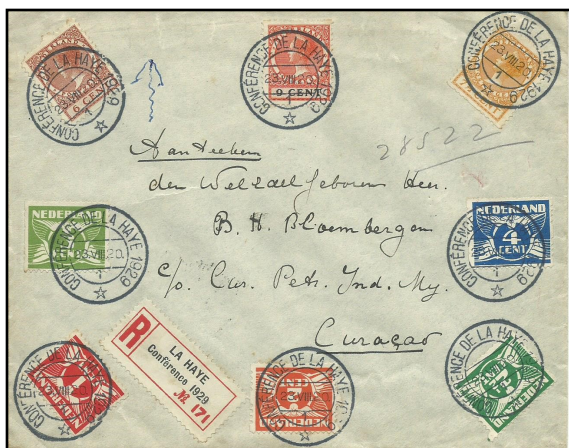 CONFÉRENCE DE LA HAYE 1929
CONFÉRENCE DE LA HAYE 1929
9 CENT
CONFÉRENCE DE LA HAYE 1929
28522
Aanteeken
den Welzdelgeboren Heer
B. H. Bloembergen
c/o Cur. Petr. Ind. My.
Curaçao
NEDERLAND
CONFÉRENCE DE LA HAYE 1929
NEDERLAND
4
CENT
CONFÉRENCE DE LA HAYE 1929
CONFÉRENCE DE LA HAYE
R
LA HAYE
Conférence 1929
№ 171
CONFÉRENCE DE LA HAYE 1929
CONFÉRENCE DE LA HAYE
NEDERLAND